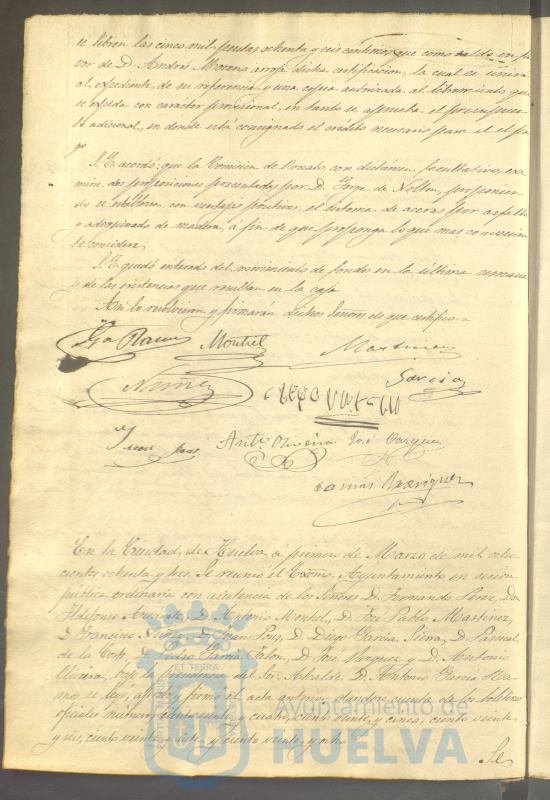 se libren las cinco mil pesetas ochenta y seis centimos que como saldo en fa
vor de D. Andrés Moreno arroja dicha certificacion, la cual se unira
al expediente de su referencia y una copia autorizada al libramiento que
se expida con caracter provisional, en tanto se aprueba el presupues
to adicional, en donde está consignado el crédito necesario para el pa
go
S. E. acordó: que la Comision de Ornato, con dictámen facultativo, exa
mine dos proposiciones presentadas por D. Jorge de
do se establezca con ventajas positivas, el sistema de aceras por asfalto
y adoquinado de madera, á fin de que proponga lo que mas conveniente
considere
S. E. quedó enterado del movimiento de fondos en la última semana
y de las existencias que resultan en la caja
Asi lo resolvieron y firmarán dichos Señores de que certifico =
Montiel Martinez
Garcia
Juan Pons Antº Oliveira José Vazquez
Tomás Dominguez
En la Ciudad de Huelva, á primero de Marzo de mil ocho
cientos ochenta y tres. Se reunió el Excmo. Ayuntamiento en sesion
pública ordinaria con asistencia de los Señores D. Fernando Perez, Don
Ildefonso D. Antonio Montiel, D. José Pablo Martinez,
D. Francisco D. Juan Pons, D. Diego Garcia D. Pascual
de la Corte, D. Pedro Garcia D. José Vazquez y D. Antonio
Oliveira, bajo la presidencia del Sr. Alcalde D. Antonio Garcia Ra
mos se leyó, aprobó y firmó el acta anterior, dandose cuenta de los boletines
oficiales números ciento veinte y cuatro, ciento veinte y cinco, ciento veinte
y seis, ciento veinte y siete y ciento veinte y ocho
Se
ET TERRÆ
Ayuntamiento de
HUELVA